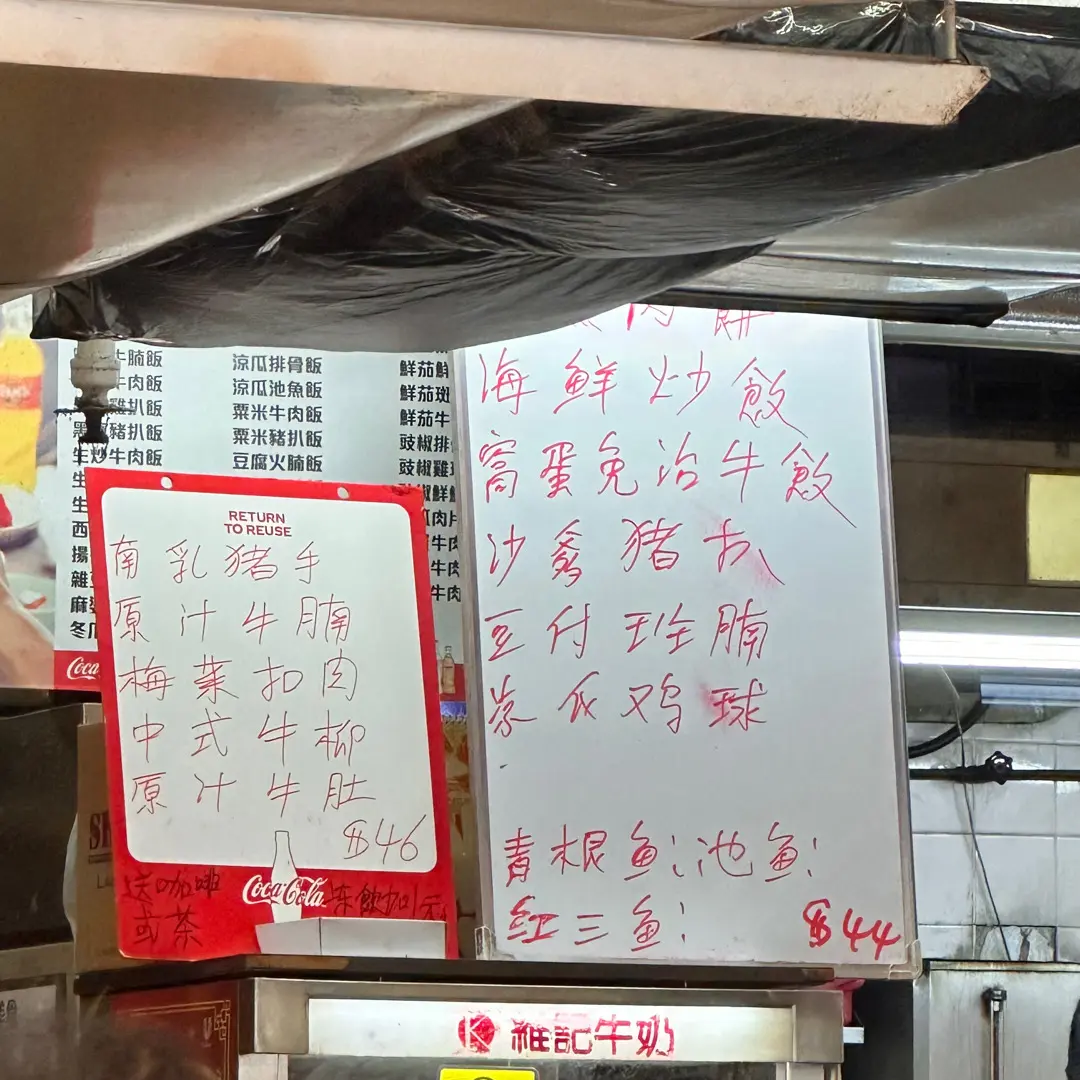 牛腩飯
牛肉飯
雞扒飯
豬扒飯
生炒牛肉飯
涼瓜排骨飯
涼瓜池魚飯
粟米牛肉飯
粟米豬扒飯
豆腐火腩飯
鮮茄
鮮茄
鮮茄牛
豉椒排
豉椒雞
RETURN
TO REUSE
南乳猪手
原汁牛腩
梅菜扣肉
中式牛柳
原汁牛肚
$46
送咖啡
或茶
Coca-Cola
冻飲加
肉餅
海鮮炒飯
窩蛋免治牛飯
沙爹猪扒
豆付玢腩
鸡球
青根鱼;池鱼;
红三鱼;
$44
維記牛奶